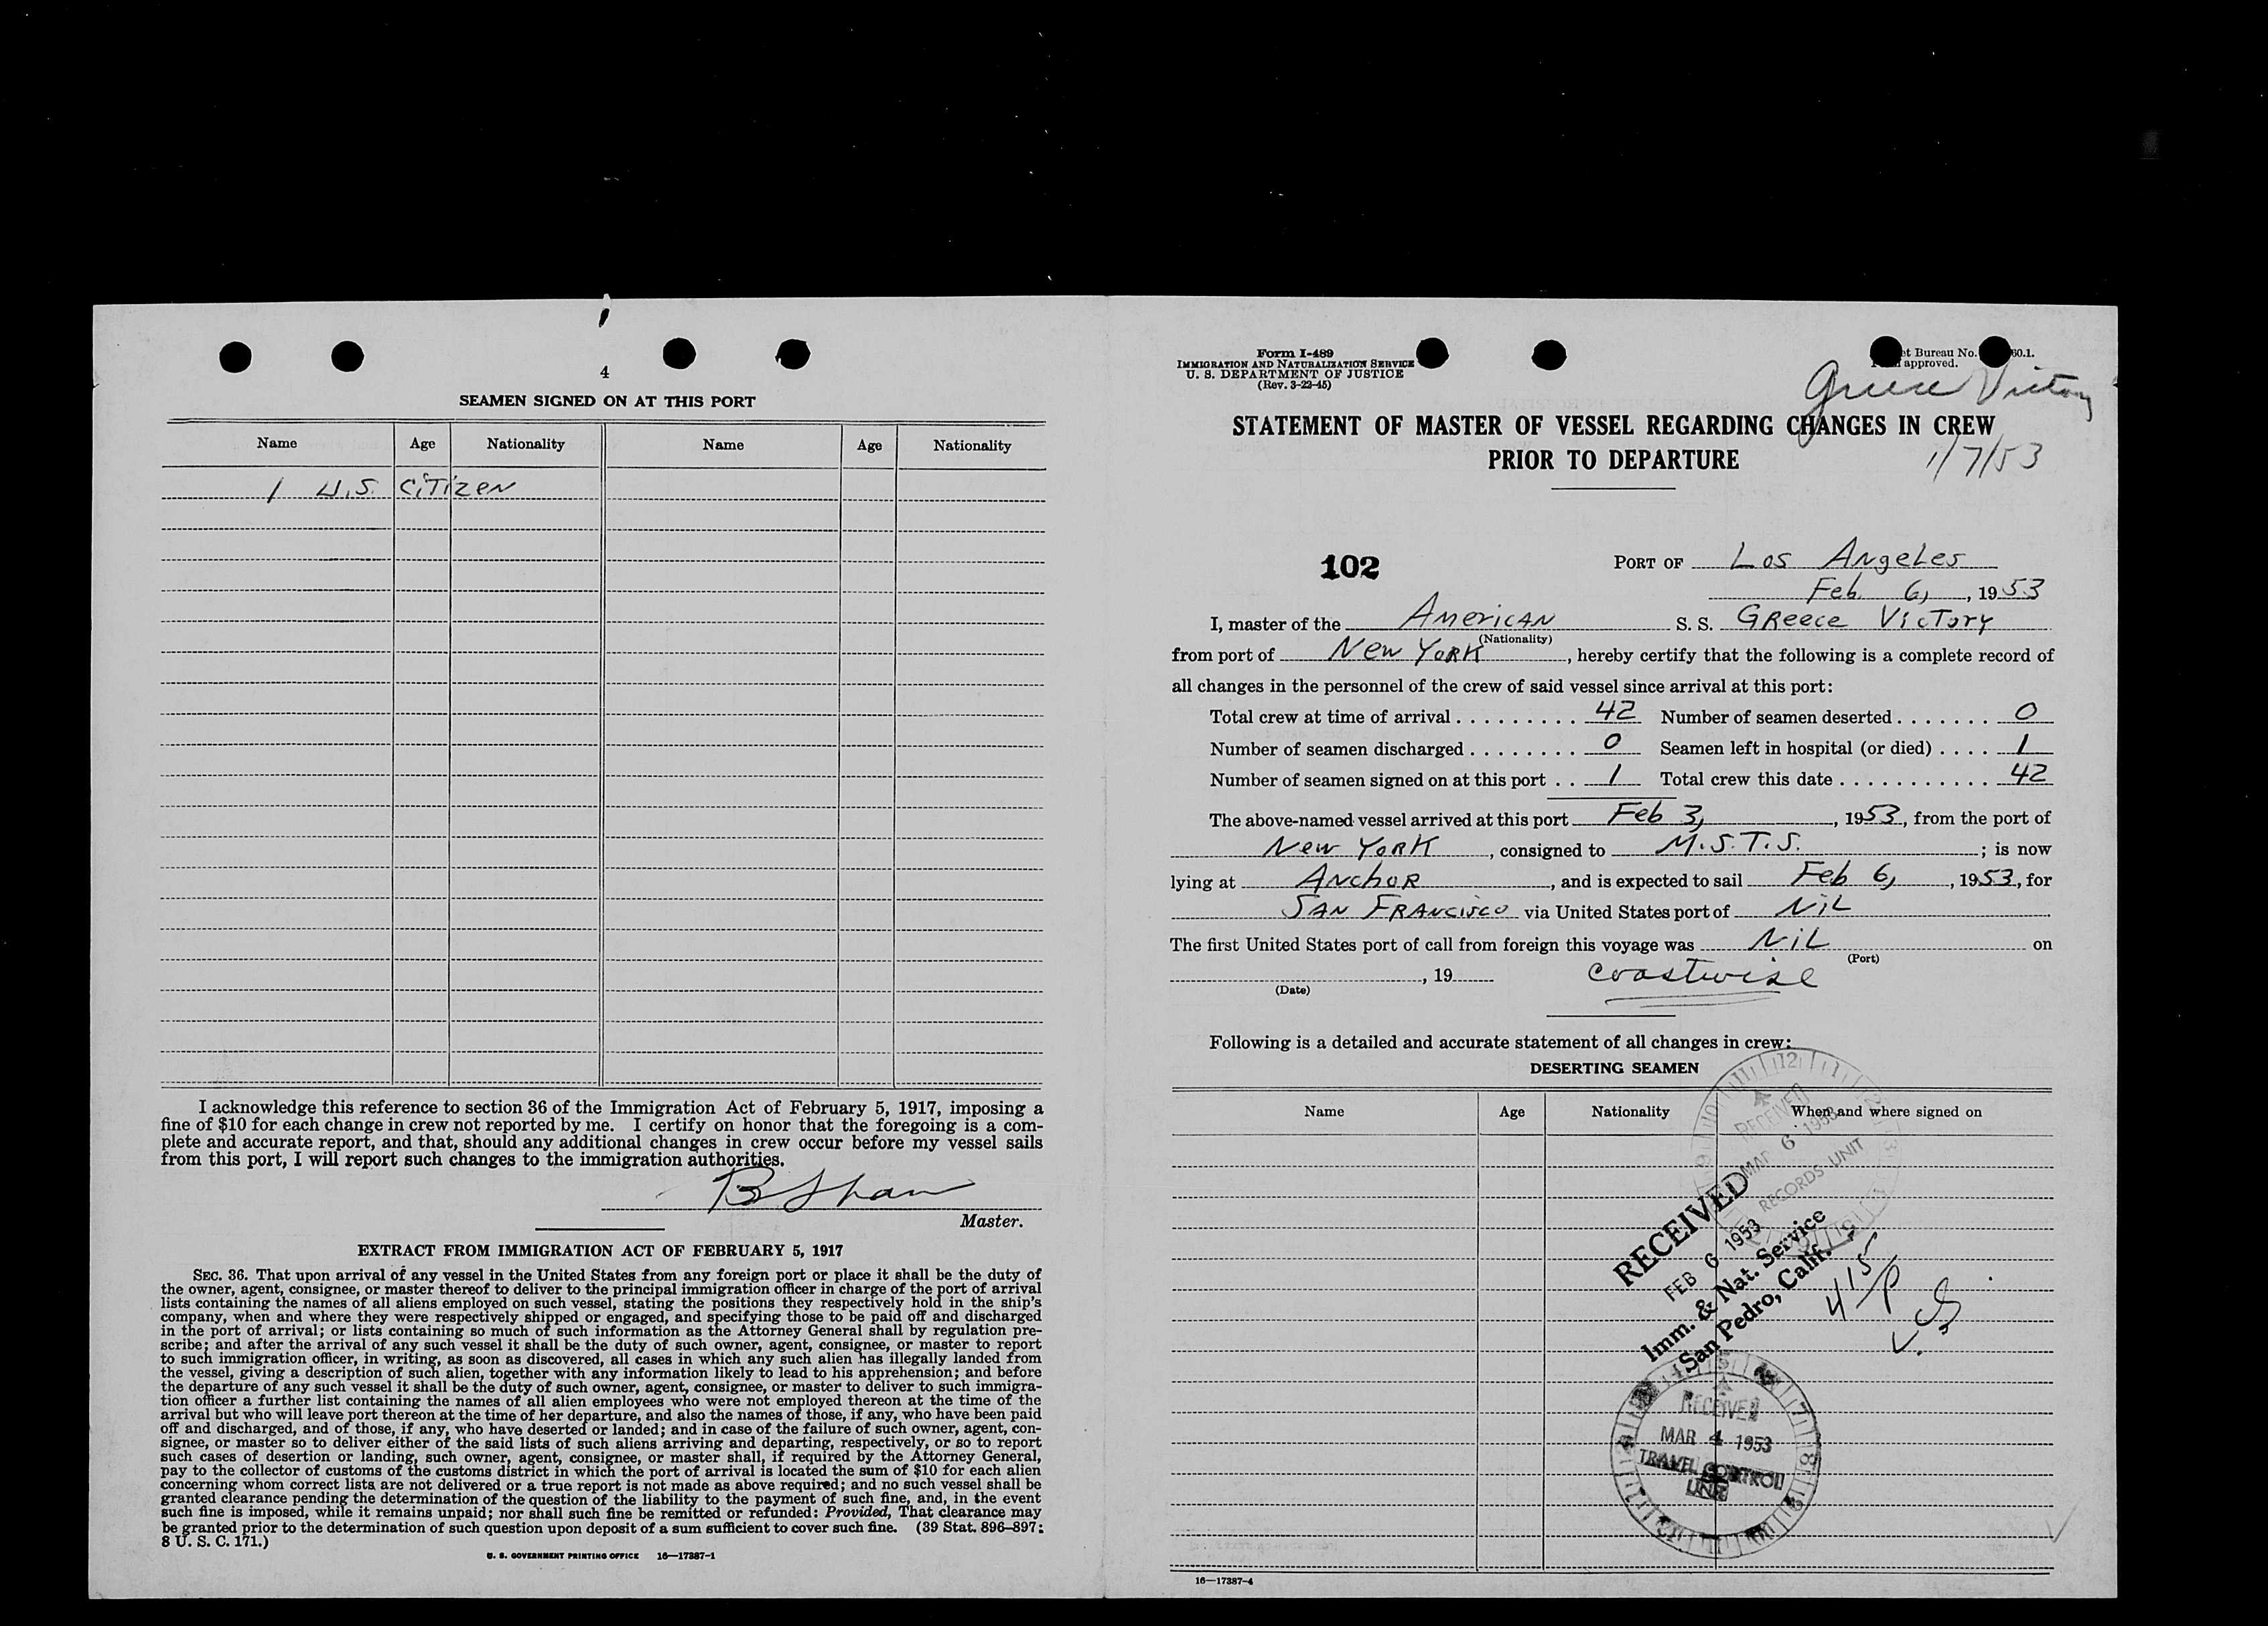 4
SEAMEN SIGNED ON AT THIS PORT
Name Age Nationality Name Age Nationality
1 U.S. CiTiZeN
I acknowledge this reference to section 36 of the Immigration Act of February 5, 1917, imposing a
fine of $10 for each change in crew not reported by me. I certify on honor that the foregoing is a com-
plete and accurate report, and that, should any additional changes in crew occur before my vessel sails
from this port, I will report such changes to the immigration authorities.
B Shaw
Master.
EXTRACT FROM IMMIGRATION ACT OF FEBRUARY 5, 1917
SEC. 36. That upon arrival of any vessel in the United States from any foreign port or place it shall be the duty of
the owner, agent, consignee, or master thereof to deliver to the principal immigration officer in charge of the port of arrival
lists containing the names of all aliens employed on such vessel, stating the positions they respectively hold in the ship's
company, when and where they were respectively shipped or engaged, and specifying those to be paid off and discharged
in the port of arrival; or lists containing so much of such information as the Attorney General shall by regulation pre-
scribe; and after the arrival of any such vessel it shall be the duty of such owner, agent, consignee, or master to report
to such immigration officer, in writing, as soon as discovered, all cases in which any such alien has illegally landed from
the vessel, giving a description of such alien, together with any information likely to lead to his apprehension; and before
the departure of any such vessel it shall be the duty of such owner, agent, consignee, or master to deliver to such immigra-
tion officer a further list containing the names of all alien employees who were not employed thereon at the time of the
arrival but who will leave port thereon at the time of her departure, and also the names of those, if any, who have been paid
off and discharged, and of those, if any, who have deserted or landed; and in case of the failure of such owner, agent, con-
signee, or master so to deliver either of the said lists of such aliens arriving and departing, respectively, or so to report
such cases of desertion or landing, such owner, agent, consignee, or master shall, if required by the Attorney General,
pay to the collector of customs of the customs district in which the port of arrival is located the sum of $10 for each alien
concerning whom correct lists are not delivered or a true report is not made as above required; and no such vessel shall be
granted clearance pending the determination of the question of the liability to the payment of such fine, and, in the event
such fine is imposed, while it remains unpaid; nor shall such fine be remitted or refunded: Provided, That clearance may
be granted prior to the determination of such question upon deposit of a sum sufficient to cover such fine. (39 Stat. 896–897;
8 U. S. C. 171.)
U. S. GOVERNMENT PRINTING OFFICE 16—17387-1
Form I-489
IMMIGRATION AND NATURALIZATION SERVICE
U. S. DEPARTMENT OF JUSTICE
(Rev. 3-22-45)
Bureau No. 60.1.
approved.
Greece Victory
1/7/53
STATEMENT OF MASTER OF VESSEL REGARDING CHANGES IN CREW
PRIOR TO DEPARTURE
102
PORT OF Los Angeles
Feb. 6, , 1953
I, master of the American S. S. Greece Victory
(Nationality)
from port of New York, hereby certify that the following is a complete record of
all changes in the personnel of the crew of said vessel since arrival at this port:
Total crew at time of arrival . . . . . . . . . 42 Number of seamen deserted . . . . . . . 0
Number of seamen discharged . . . . . . . . 0 Seamen left in hospital (or died) . . . . 1
Number of seamen signed on at this port . . 1 Total crew this date . . . . . . . . . . . . 42
The above-named vessel arrived at this port Feb 3, , 1953, from the port of
New York, consigned to M.S.T.S. ; is now
lying at Anchor, and is expected to sail Feb 6, , 1953, for
San Francisco via United States port of Nil
The first United States port of call from foreign this voyage was Nil on
(Port)
, 19 coastwise
(Date)
Following is a detailed and accurate statement of all changes in crew:
DESERTING SEAMEN
Name Age Nationality When and where signed on
RECEIVED
MAR 6 1953
RECORDS UNIT
RECEIVED
FEB 6 1953
Imm. & Nat. Service
San Pedro, Calif.
415/P
RECEIVED
MAR 4 1953
TRAVEL CONTROL
UNIT
16—17387-4